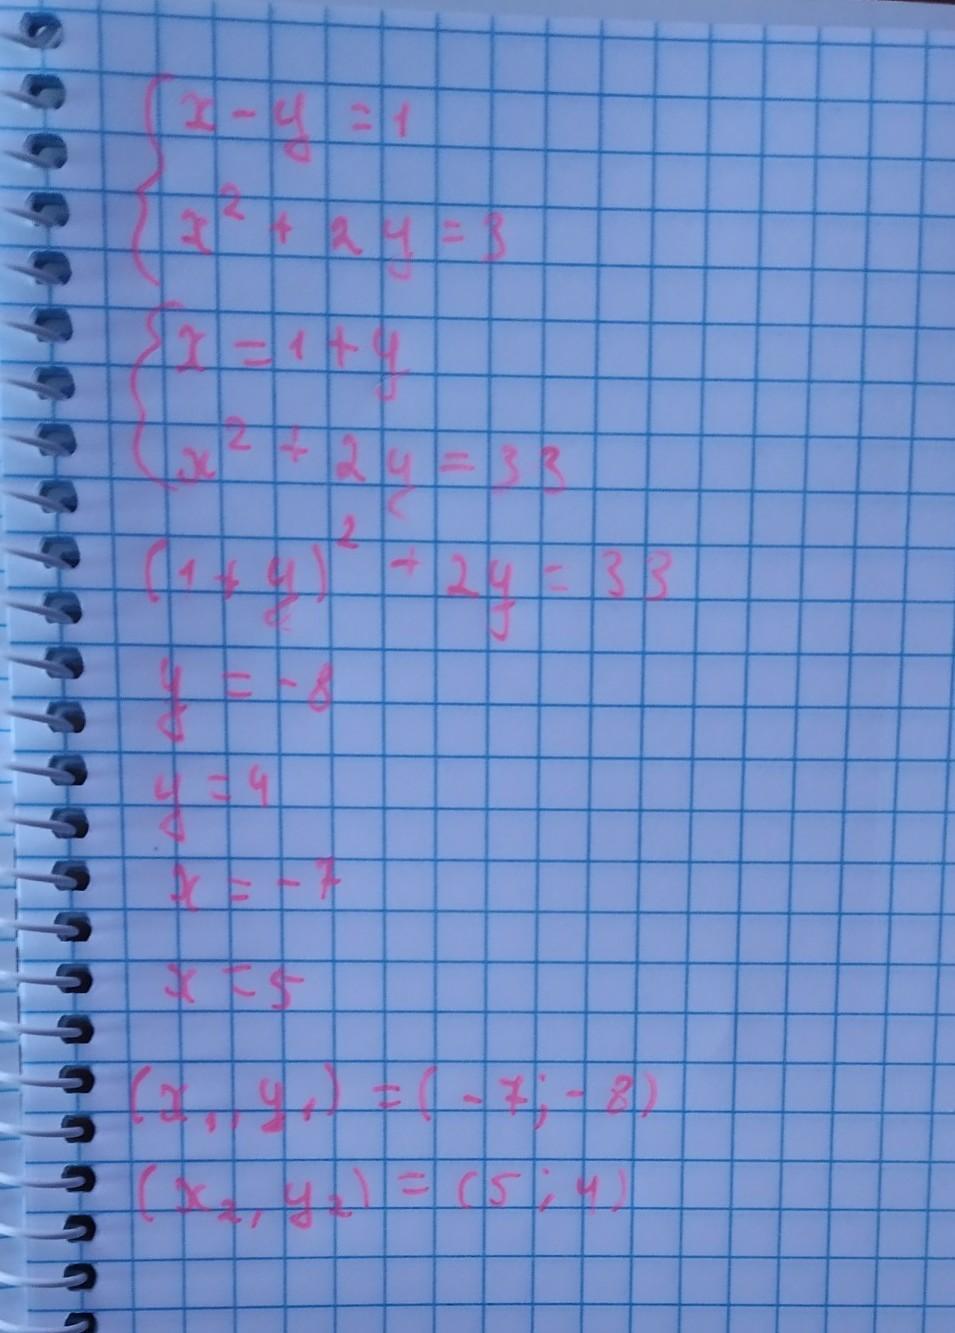 x - y = 1
x² + 2y = 3
x = 1 + y
x² + 2y = 33
(1 + y)² + 2y = 33
y = -8
y = 4
x = -7
x = 5
(x₁, y₁) = (-7; -8)
(x₂, y₂) = (5; 4)